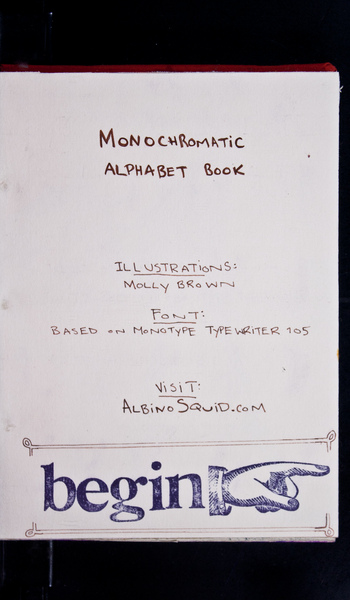 MONOCHROMATIC
ALPHABET BOOK
ILLUSTRATIONS:
MOLLY BROWN
FONT:
BASED ON MONOTYPE TYPEWRITER 105
VISIT:
ALBINOSQUID.COM
begin